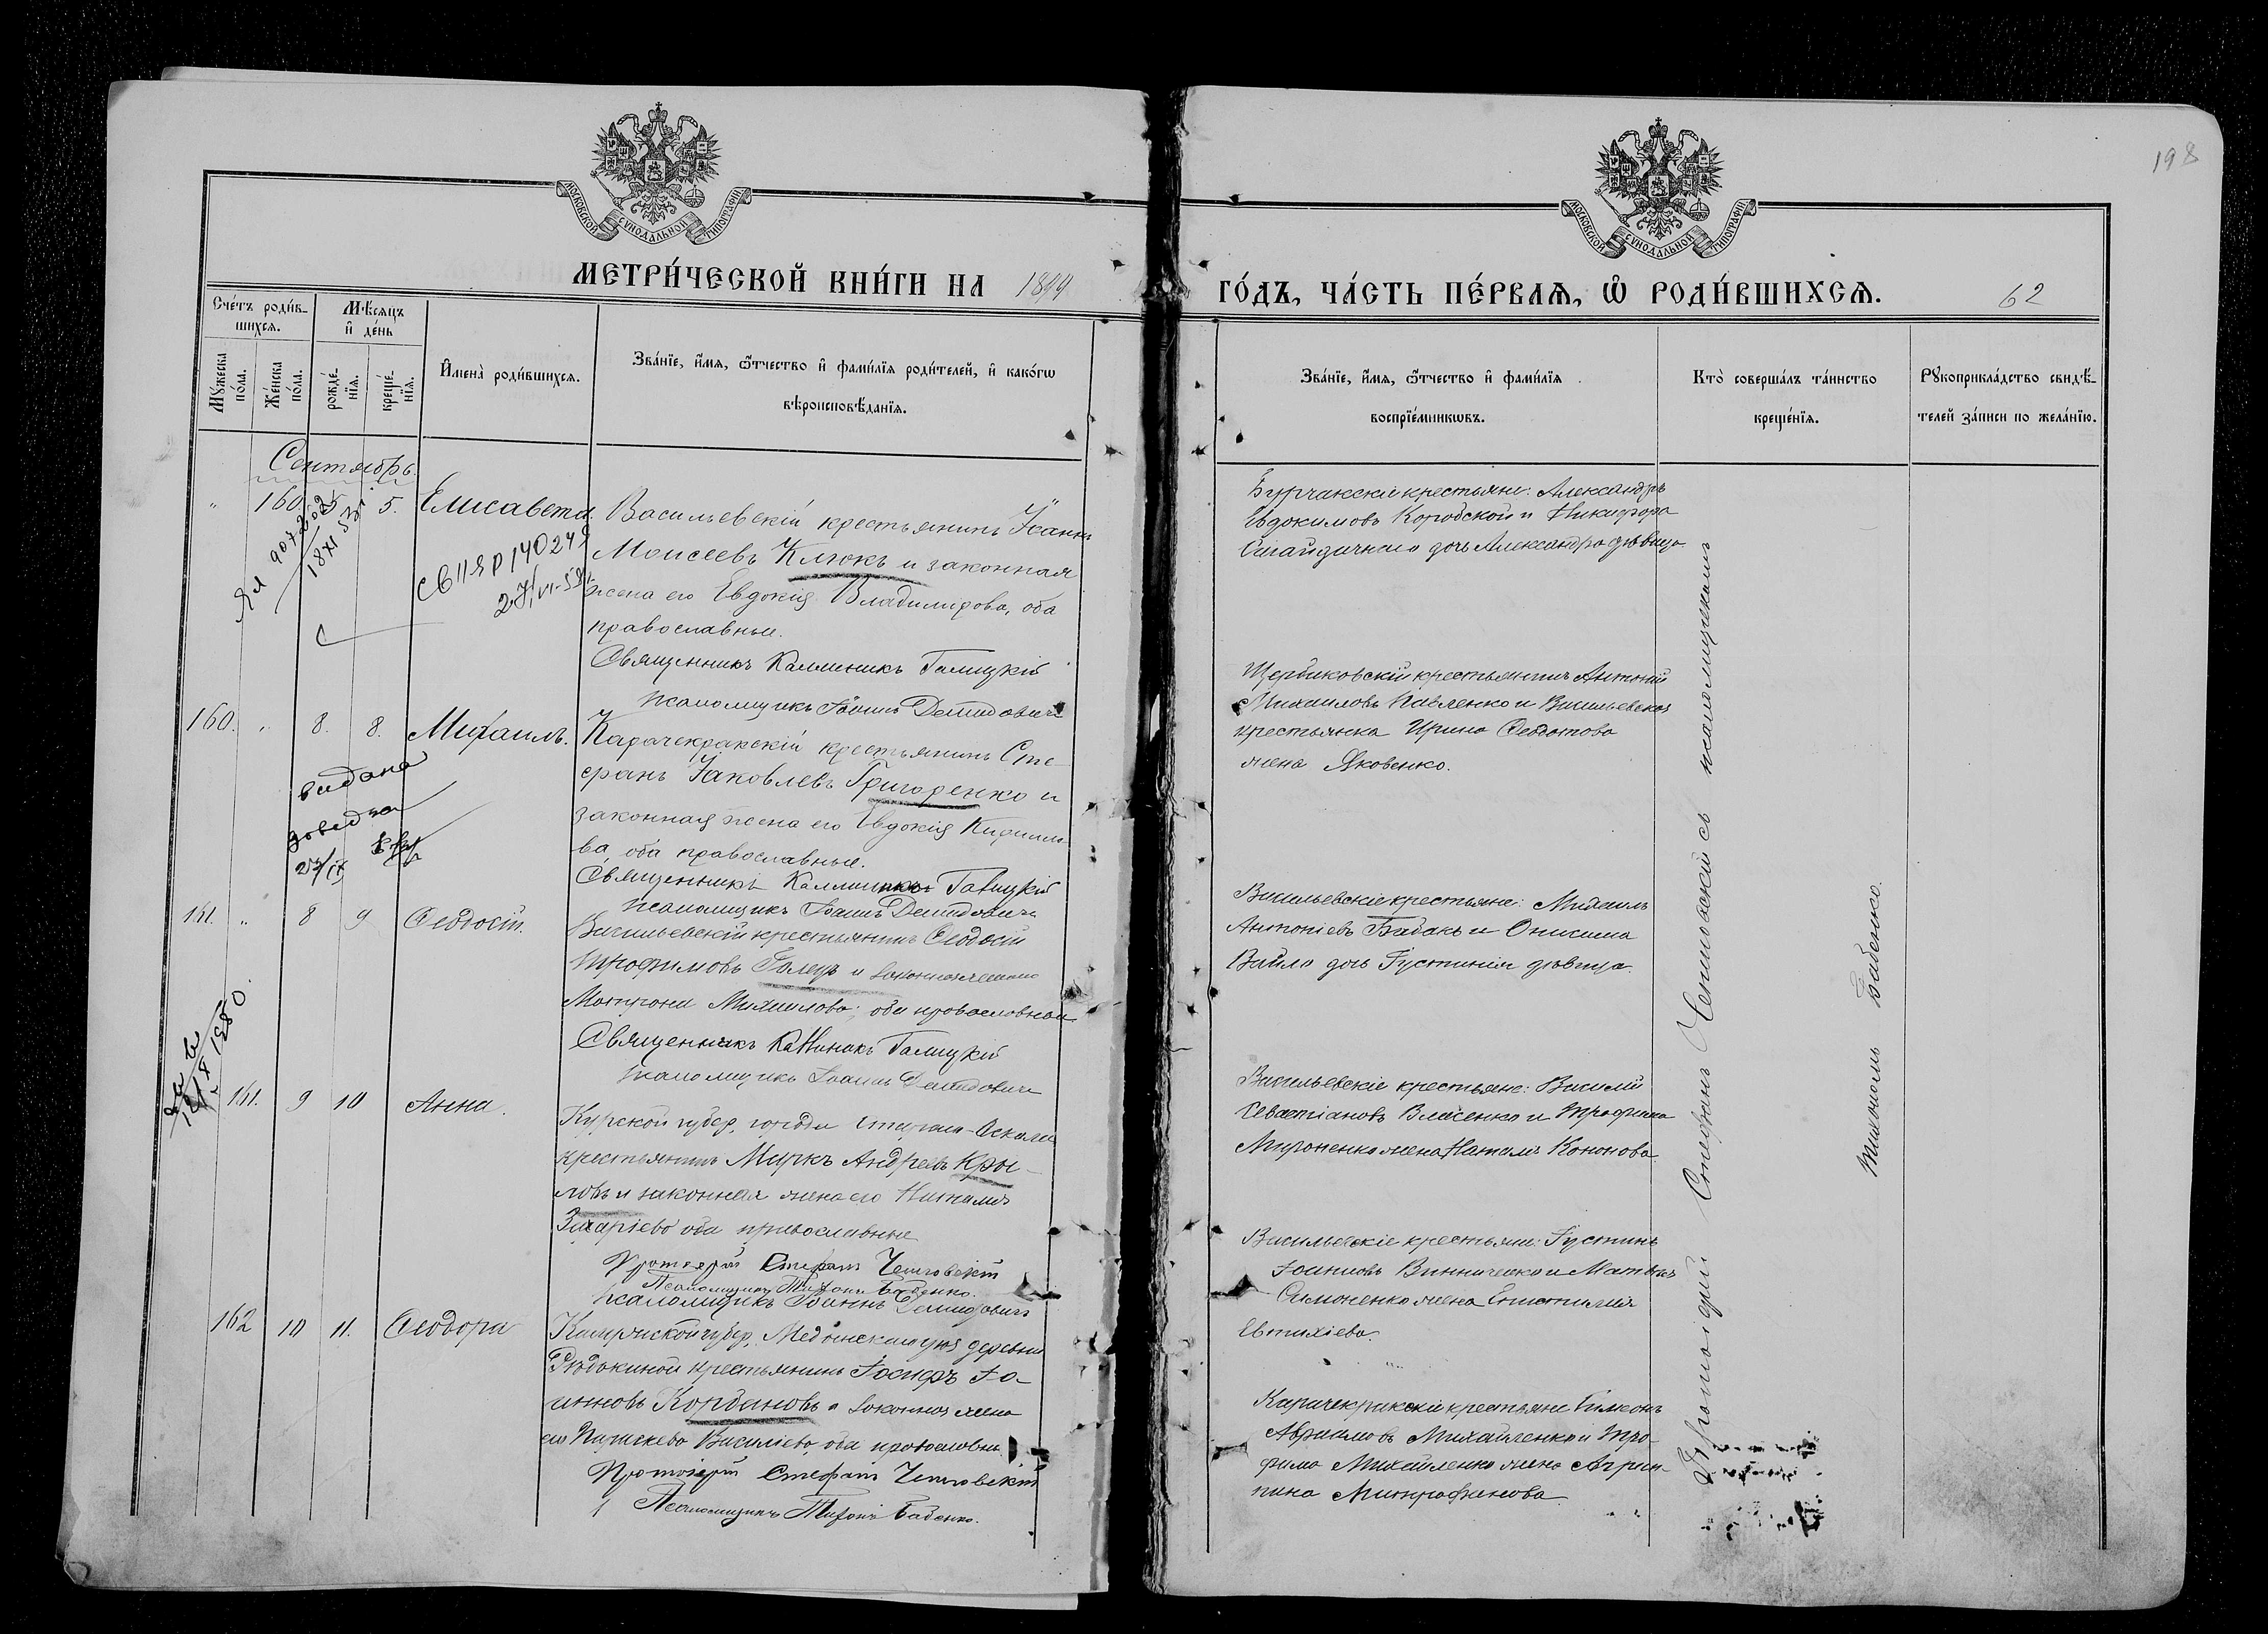 198
МОСКОВСКОЙ СѴНОДАЛЬНОЙ ТИПОГРАФІИ
МОСКОВСКОЙ СѴНОДАЛЬНОЙ ТИПОГРАФІИ
МЕТРИ́ЧЕСКОЙ КНИ́ГИ НА 1899
ГО́ДЪ, ЧА́СТЬ ПЕ́РВАѦ, Ѽ РОДИ́ВШИХСѦ.
62
Сче́тъ роди́в-
шихсѧ.
Мѣ́сѧцъ
и҆ де́нь
Мꙋ́жеска
по́ла.
Же́нска
по́ла.
рожде́-
нїѧ.
креще́-
нїѧ.
И҆мена̀ роди́вшихсѧ.
Зва́нїе, и҆́мѧ, ѻ҆́тчество и҆ фами́лїѧ роди́телей, и҆ како́гѡ
вѣроисповѣ́данїѧ.
Зва́нїе, и҆́мѧ, ѻ҆́тчество и҆ фами́лїѧ
воспрїе́мникѡвъ.
Кто̀ соверша́лъ та́инство
креще́нїѧ.
Рꙋкоприкла́дство свидѣ́-
телей за́писи по жела́нїю.
Сентябрь.
" 160. 5. 5. Елисавета.
Васильевскій крестьянинъ Іоаннъ
Моисеевъ Клюкъ и законная
жена его Евдокія Владимірова, оба
православные.
Священникъ Каллиникъ Галицкій
Псаломщикъ Іоаннъ Демидовичъ
Бурчакскіе крестьяне: Александръ
Евдокимовъ Коробской и Никифора
дочь Александра дѣвица.
СВ ІІ ЯР 140249
160. " 8. 8. Михаилъ.
видана
довідка
Карачекракскій крестьянинъ Сте-
фанъ Іаковлевъ Григоренко и
законная жена его Евдокія Кирилло-
ва, оба православные.
Священникъ Каллиникъ Галицкій
Псаломщикъ Іоаннъ Демидовичъ
Щербиковскій крестьянинъ Антоній
Михаиловъ Павленко и Васильевская
крестьянка Ирина Ѳеодотова
жена Яковенко.
161. " 8 9 Ѳеодосій.
Васильевскій крестьянинъ Ѳеодосій
Трофимовъ Голецъ и законная жена его
Матрона Михаилова; оба православные
Священникъ Каллиникъ Галицкій
Псаломщикъ Іоаннъ Демидовичъ
Васильевскіе крестьяне: Михаилъ
Антоніевъ Бабакъ и Онисима
Вайло дочь Іустинія дѣвица.
161. 9 10 Анна.
Курской губер. города Стараго-Оскола
крестьянинъ Маркъ Андреевъ Кры-
ловъ и законная жена его Наталія
Захаріева оба православные
Протоіерей Стефанъ Чепиговскій
Псаломщикъ Тихонъ Бабенко.
Псаломщикъ Іоаннъ Демидовичъ
Васильевскіе крестьяне: Василій
Севастіановъ Власенко и Трофима
Мироненко жена Наталія Кононова.
162 10 11. Ѳеодора
Калужской губер. Медынскаго уѣз. деревни
Рѣдькиной крестьянинъ Іосифъ Іо-
анновъ Кордановъ и законная жена
его Параскева Василіева, оба православн.
Протоіерей Стефанъ Чепиговскій
Псаломщикъ Тихонъ Бабенко.
Васильевскіе крестьяне: Іустинъ
Іоанновъ Винниченко и Матѳея
Симоненко жена Епистимія
Евтихіева.
Карачекракскіе крестьяне Симеонъ
Авраамовъ Михайленко и Тро-
фима Михайленко жена Агрип-
пина Митрофанова.
Протоіерей Стефанъ Чепиговскій съ псаломщикомъ
Тихономъ Бабенко.